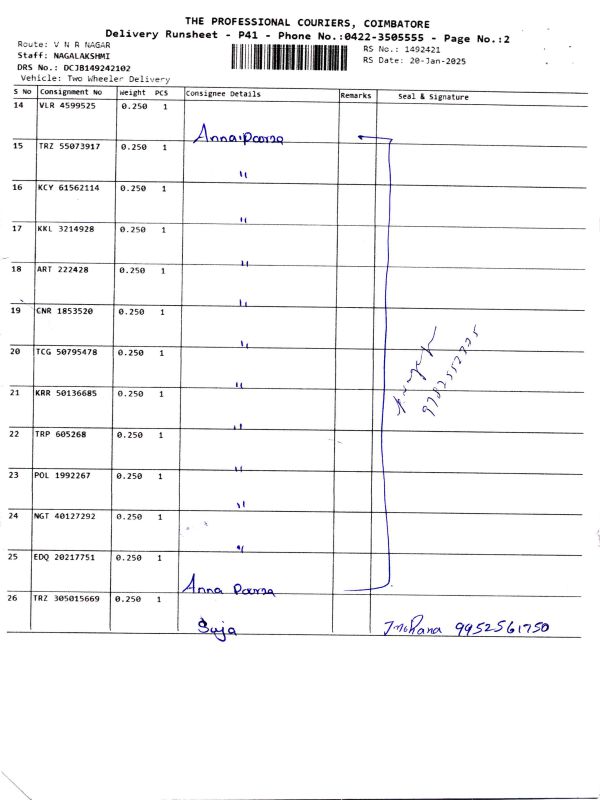 THE PROFESSIONAL COURIERS, COIMBATORE
Delivery Runsheet - P41 - Phone No.:0422-3505555 - Page No.:2
Route: V N R NAGAR
RS No.: 1492421
Staff: NAGALAKSHMI
RS Date: 20-Jan-2025
DRS No.: DCJB149242102
Vehicle: Two Wheeler Delivery
S No Consignment No Weight PCS Consignee Details Remarks Seal & Signature
14 VLR 4599525 0.250 1
Anna Poorna
15 TRZ 55073917 0.250 1
"
16 KCY 61562114 0.250 1
"
17 KKL 3214928 0.250 1
"
18 ART 222428 0.250 1
"
19 CNR 1853520 0.250 1
"
20 TCG 50795478 0.250 1
"
21 KRR 50136685 0.250 1
"
22 TRP 605268 0.250 1
"
23 POL 1992267 0.250 1
"
24 NGT 40127292 0.250 1
"
25 EDQ 20217751 0.250 1
Anna Poorna
26 TRZ 305015669 0.250 1
Suja 9952561750